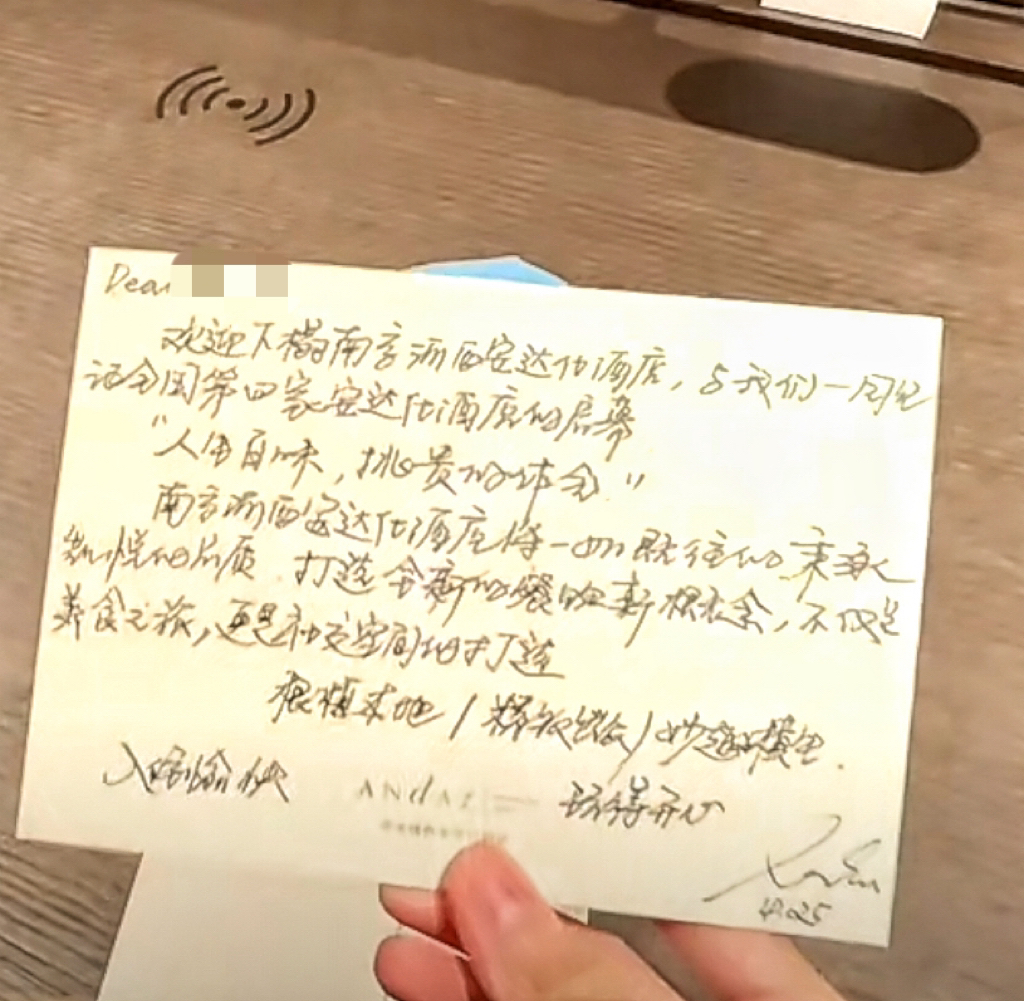 Dear
欢迎下榻南京河西安达仕酒店，与我们一同见
证全国第四家安达仕酒店的启幕
"人间百味，挑贵的体会"
南京河西安达仕酒店将一如既往的秉承
凯悦的品质 打造全新的餐饮新概念，不仅是
美食之旅，更是社交空间的打造
根植本地/释放/妙趣横生.
入住愉快 玩得开心
ANdAZ
4.25